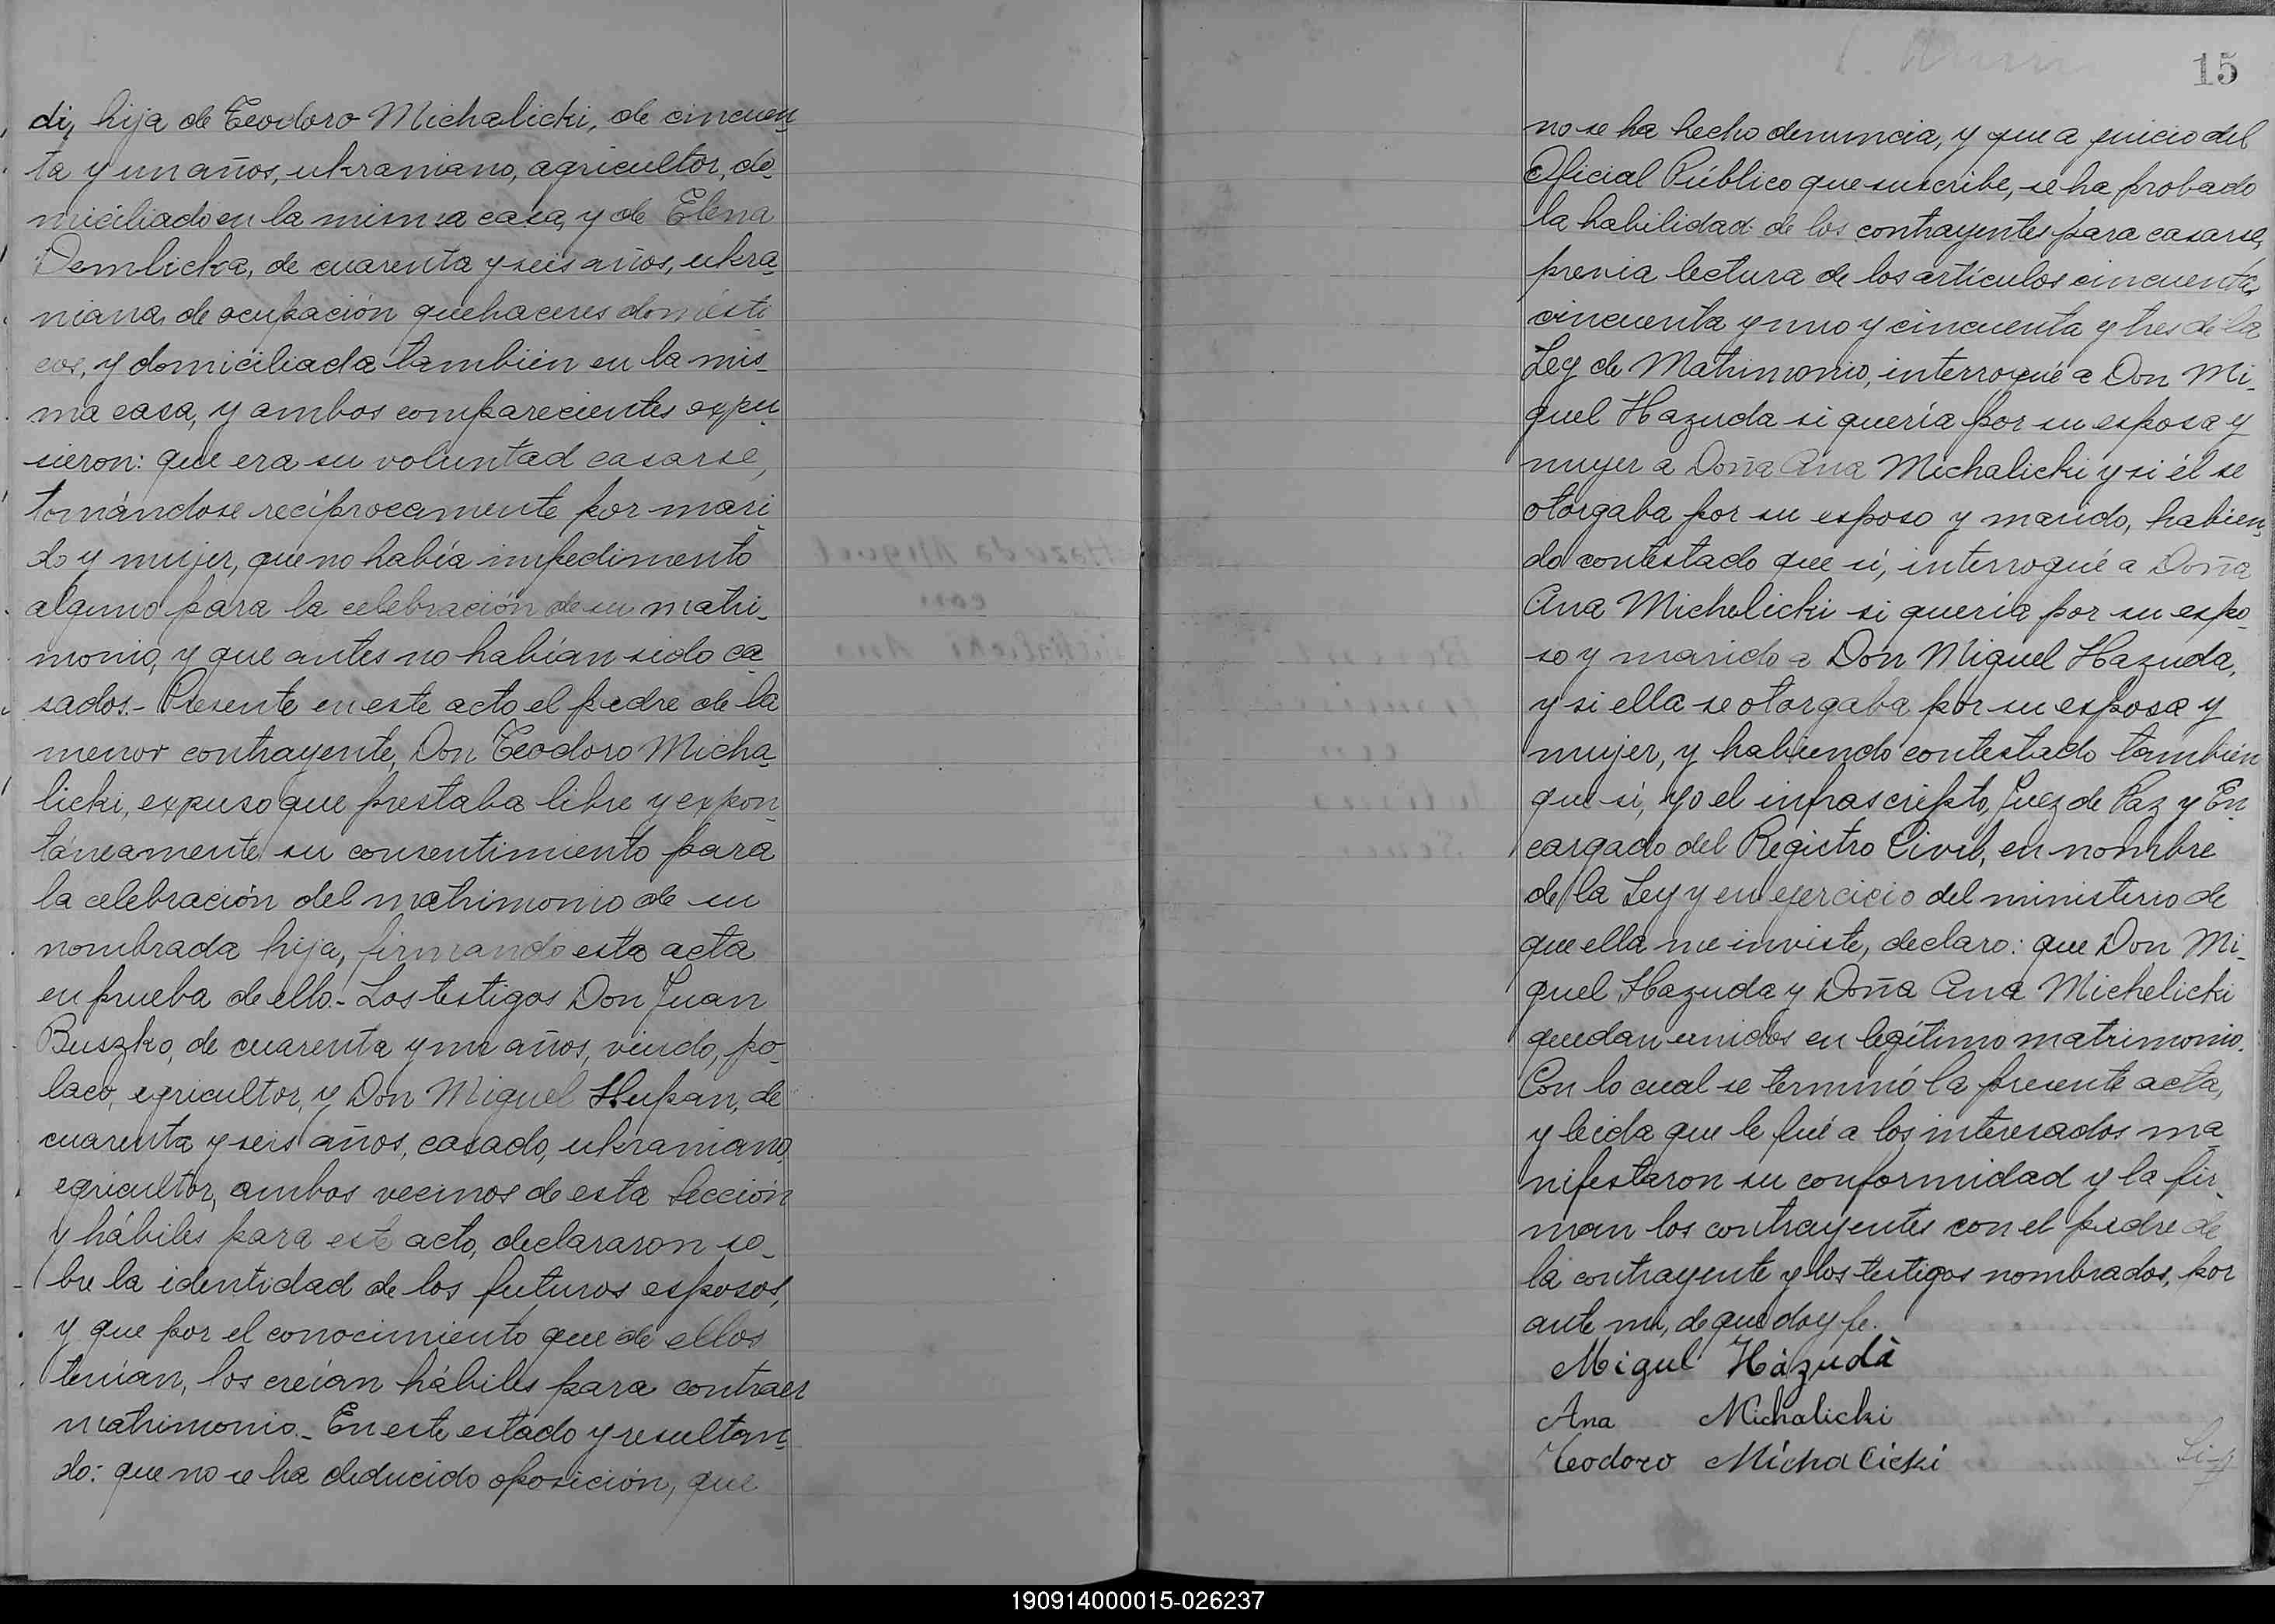 di, hija de Teodoro Michalicki, de cincuen
ta y un años, ukraniano, agricultor, do
miciliado en la misma casa, y de Elena
Demlicka, de cuarenta y seis años, ukra
niana, de ocupación quehaceres domésti
cos, y domiciliada también en la mis
ma casa, y ambos comparecientes expu
sieron: que era su voluntad casarse,
tomándose recíprocamente por mari
do y mujer, que no había impedimento
alguno para la celebración de su matri
monio, y que antes no habían sido ca
sados.- Presente en este acto el padre de la
menor contrayente, Don Teodoro Micha
licki, expuso que prestaba libre y expon
táneamente su consentimiento para
la celebración del matrimonio de su
nombrada hija, firmando esta acta
en prueba de ello.- Los testigos Don Juan
Buszko, de cuarenta y un años, viudo, po
laco, agricultor, y Don Miguel Hupan, de
cuarenta y seis años, casado, ukraniano,
agricultor, ambos vecinos de esta Sección
y hábiles para este acto, declararon so
bre la identidad de los futuros esposos,
y que por el conocimiento que de ellos
tenían, los creían hábiles para contraer
matrimonio.- En este estado y resultan
do: que no se ha deducido oposición, que
15
no se ha hecho denuncia, y que a juicio del
Oficial Público que suscribe, se ha probado
la habilidad de los contrayentes para casarse,
previa lectura de los artículos cincuenta,
cincuenta y uno y cincuenta y tres de la
Ley de Matrimonio, interrogué a Don Mi
guel Hazuda si quería por su esposa y
mujer a Doña Ana Michalicki y si él se
otorgaba por su esposo y marido, habien
do contestado que sí, interrogué a Doña
Ana Michelicki si quería por su espo
so y marido a Don Miguel Hazuda,
y si ella se otorgaba por su esposa y
mujer, y habiendo contestado también
que sí, yo el infrascripto, Juez de Paz y En
cargado del Registro Civil, en nombre
de la Ley y en ejercicio del ministerio de
que ella me inviste, declaro: que Don Mi
guel Hazuda y Doña Ana Michelicki
quedan unidos en legítimo matrimonio.
Con lo cual se terminó la presente acta,
y leída que le fué a los interesados ma
nifestaron su conformidad y la fir
man los contrayentes con el padre de
la contrayente y los testigos nombrados, por
ante mi, de que doy fe.
Migul Házudà
Ana Michalicki
Teodoro Michalicki
190914000015-026237